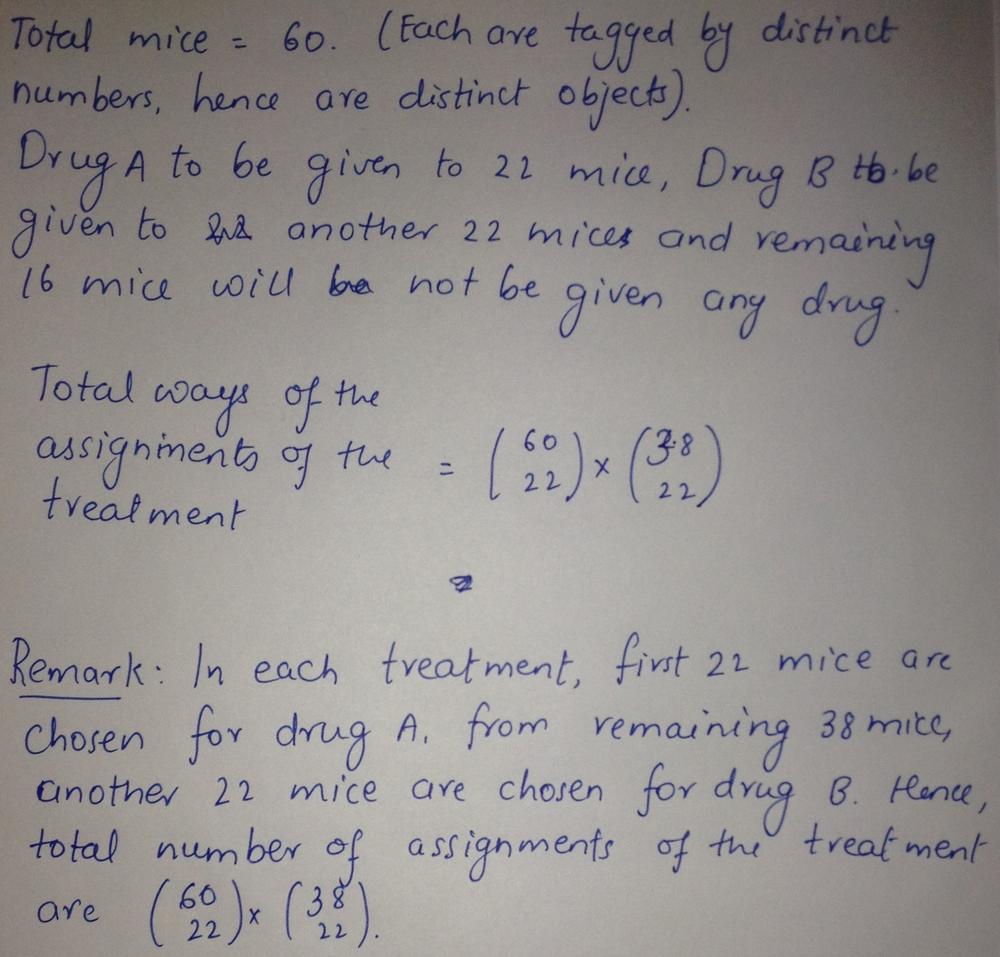 Total mice = 60. (Each are tagged by distinct
numbers, hence are distinct objects).
Drug A to be given to 22 mice, Drug B to be
given to another 22 mices and remaining
16 mice will not be given any drug.
Total ways of the
assignments of the = (60 22) × (38 22)
treatment
Remark: In each treatment, first 22 mice are
chosen for drug A. from remaining 38 mice,
another 22 mice are chosen for drug B. Hence,
total number of assignments of the treatment
are (60 22) × (38 22).